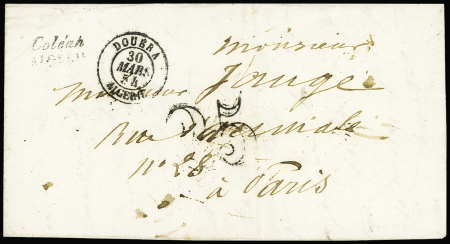 Coléah
ALGERIE
DOUÉRA
30
MARS
54
ALGERIE
25
Monsieur
Jauge
Rue
n° 28
à Paris